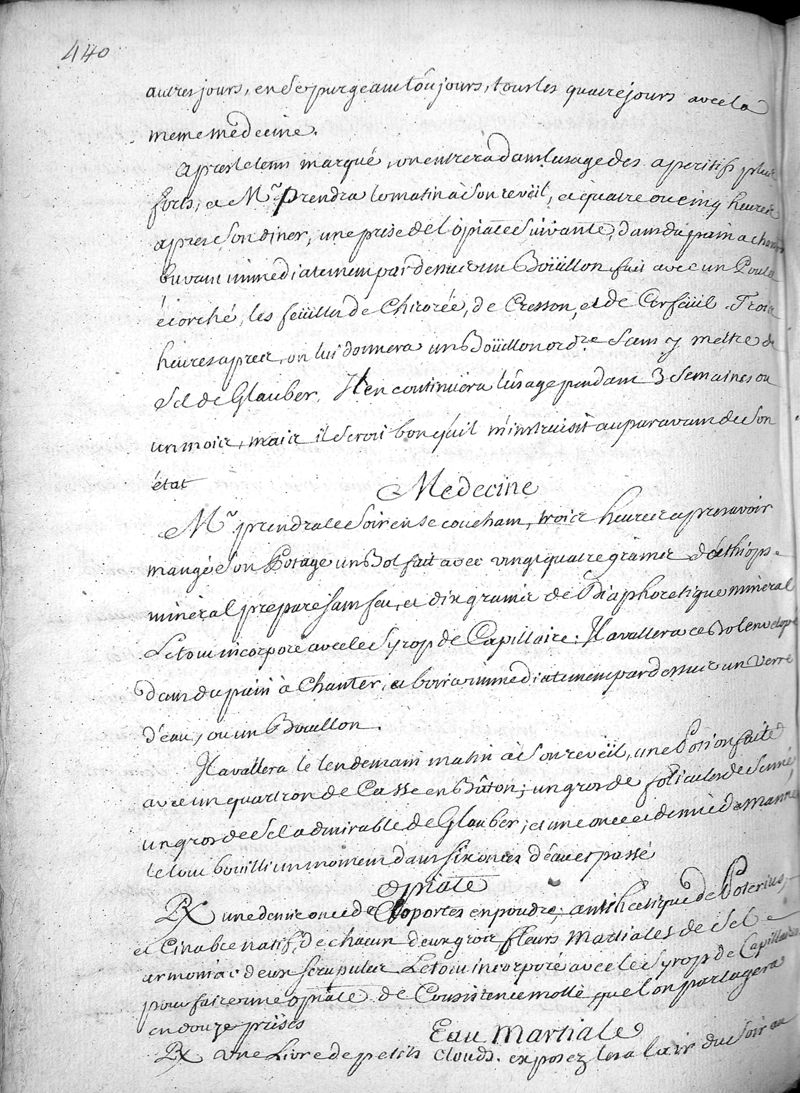 440
autres jours, en se purgeant toujours, tous les quatre jours avec la
meme medecine.
Apres le tems marqué, on entrera dans l'usage des aperitifs plus
forts, et Mr. prendra le matin à son reveil, et quatre ou cinq heures
apres son diner, une prise de l'opiate suivante, dans du pain a chanter
buvant immediatement par dessus un Boüillon fait avec un Poulet
écorché, les feüilles de Chicorée, de Cresson, et de Cerfeüil. Trois
heures apres, on lui donnera un Boüillon ordre sans y mettre de
Sel de Glauber. Il en continuera l'usage pendant 3 semaines ou
un mois, mais il seroit bon qu'il m'instruisit auparavant de son
état
Medecine
Mr. prendra le soir en se couchant, trois heures apres avoir
mangé son Potage un Bol fait avec vingt quatre grains d'æthiops
mineral preparé sans feu, et dix grains de Diaphoretique mineral
Le tout incorporé avec le Syrop de Capillaire. Il avallera ce Bol enveloppé
dans du pain à Chanter, et boira immediatement par dessus un verre
d'eau, ou un Bouillon.
Il avallera le lendemain matin à son reveil, une Potion faite
avec un quartron de Casse en Bâton, un gros de folicules de senné
un gros de sel admirable de Glauber, et une once et demie de manne
le tout bouilli un moment dans six onces d'eau et passé
Opiate
Rx une demie once de Cloportes en poudre, antihectique de Poterius,
et Cinabre natif, de chacun deux gros fleurs Martiales de Sel
armoniac deux scrupules Le tout incorporé avec le Syrop de Capillaire
pour faire une opiate de Consistence molle, que l'on partagera
en douze prises
Eau Martiale
Rx une Livre de petits Clouds. exposez les a l'air du soir au